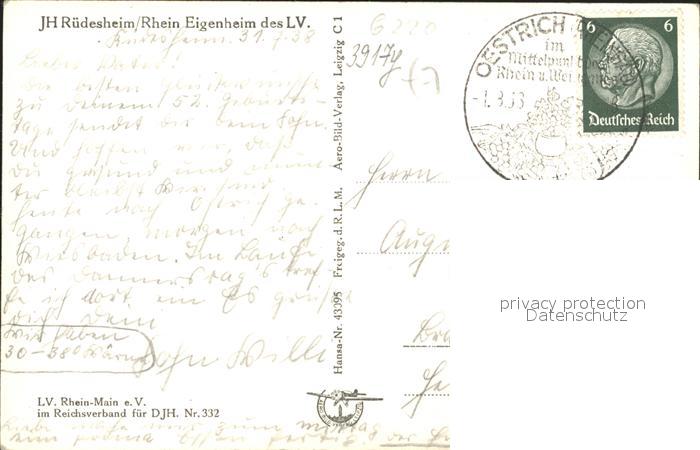 JH Rüdesheim/Rhein Eigenheim des LV.
Rüdesheim, 31.7.38
Lieber Vater!
Die besten Glückwünsche
zu Deinem 52. Geburts-
tage sendet dir dein Sohn.
Und hoffen wir, daß
Du gesund und mun-
ter bleibst. Wir sind
heute nach Östrich ge-
gangen, morgen nach
Wiesbaden. Im Laufe
des Donnerstag's tref-
fe ich dort ein. Es grüßt
dich dein
Sohn Willi
Wir haben
30-38° Wärme
LV. Rhein-Main e.V.
im Reichsverband für DJH. Nr. 332
zum
der
Hansa-Nr. 43095 Freigeg. d. R. L. M. Aero-Bild-Verlag, Leipzig C 1
6220
3917y
OESTRICH
im
Mittelpunkt
Rhein u.
-1.8.38
6 6
Deutsches Reich
Herrn
Aug
Bra
He
privacy protection
Datenschutz